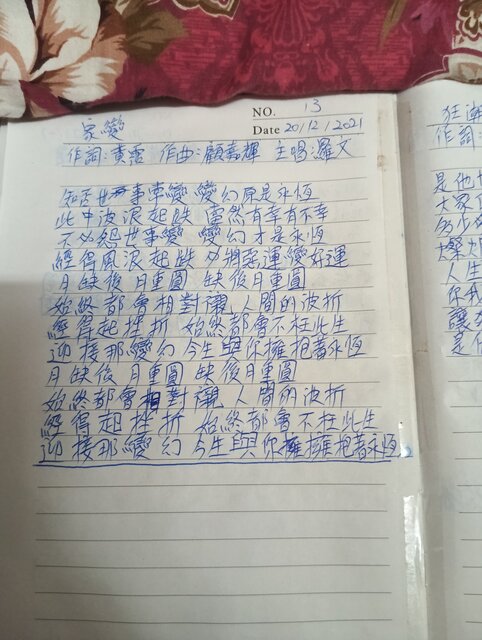 NO. 13
家變
Date 20/12/2021
作詞:黄霑 作曲:顧嘉輝 主唱:羅文
知否世事事變 變幻原是永恆
此中波浪起跌 當然有幸有不幸
不必怨世事變 變幻才是永恆
經得風浪起跌 必將惡運變好運
月缺後月重圓 缺後月重圓
始終都會相對襯 人間的波折
經得起挫折 始終都會不枉此生
迎接那變幻 今生與你擁抱著永恆
月缺後 月重圓 缺後月重圓
始終都會相對襯 人間的波折
經得起挫折 始終都會不枉此生
迎接那變幻 今生與你擁擁抱著永恆
狂潮
作詞:
是他也
大家
多少
燦
人生
你我
讓
是